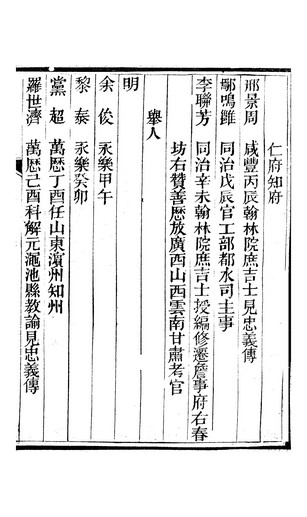 仁府知府
邢景周 咸豐丙辰翰林院庶吉士見忠義傳
鄢鳴雝 同治戊辰官工部都水司主事
李聯芳 同治辛未翰林院庶吉士授編修遷詹事府右春
坊右贊善歷放廣西山西雲南甘肅考官
舉人
明
余俊 永樂甲午
黎泰 永樂癸卯
黨超 萬歷丁酉任山東濵州知州
羅世濟 萬歷己酉科解元澠池縣教諭見忠義傳